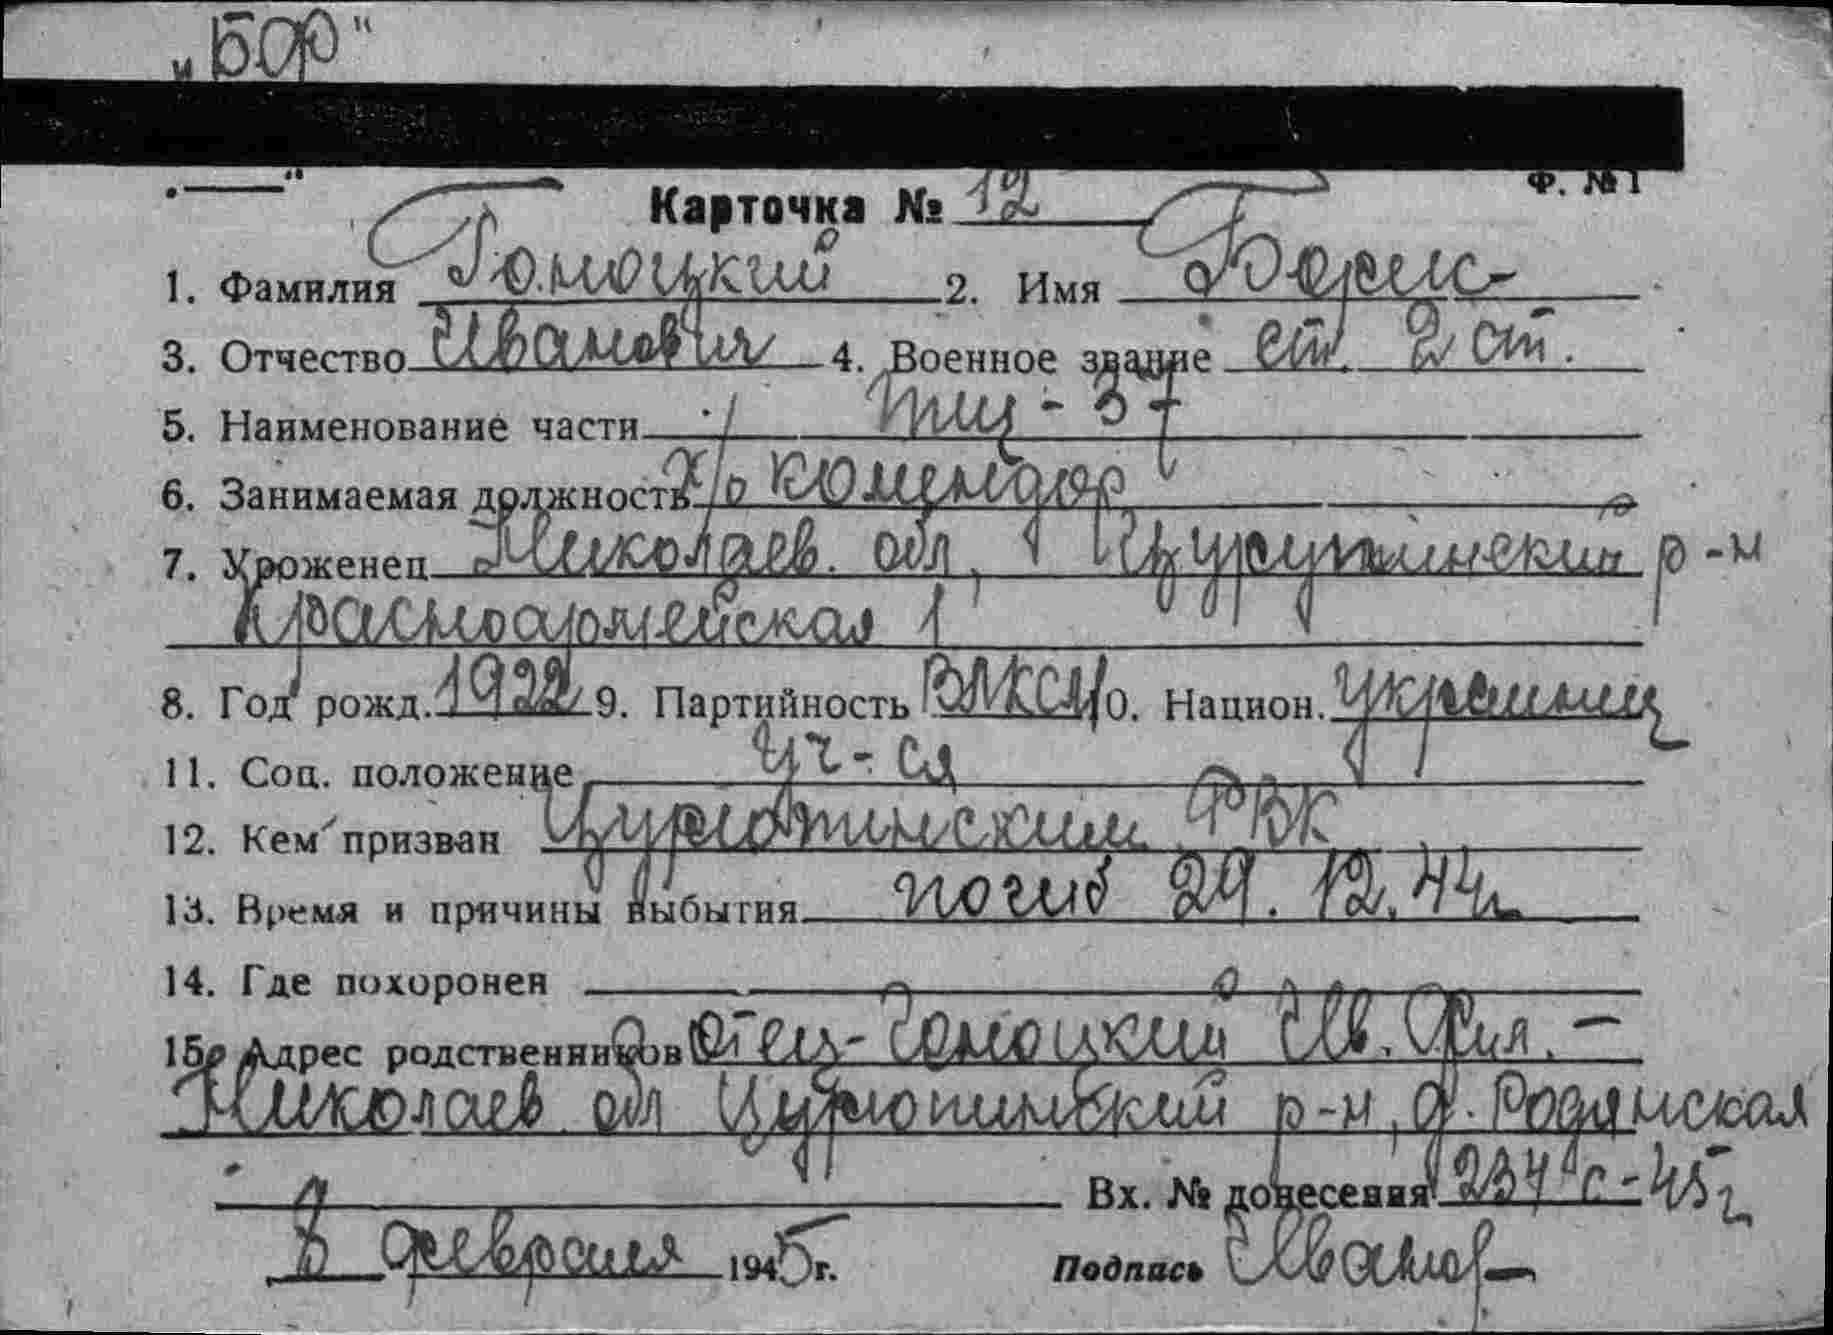 „БФ“
„——“ Ф. №1
Карточка № 12
1. Фамилия Гомоцкий 2. Имя Борис
3. Отчество Иванович 4. Военное звание ст. 2 ст.
5. Наименование части тщ-37
6. Занимаемая должность х/о комендор
7. Уроженец Николаев. обл, Цурупинский р-н
Красноармейская 1
8. Год рожд. 1922 9. Партийность ВЛКСМ 10. Национ. украинец
11. Соц. положение уч-ся
12. Кем призван Цурюпинским РВК
13. Время и причины выбытия погиб 29.12.44г
14. Где похоронен
15. Адрес родственников Отец-Гомоцкий Ив. Фил. –
Николаев. обл Цурюпинский р-н, д. Родянская
Вх. № донесения 234с-45г
8 февраля 1945г. Подпись Иванов